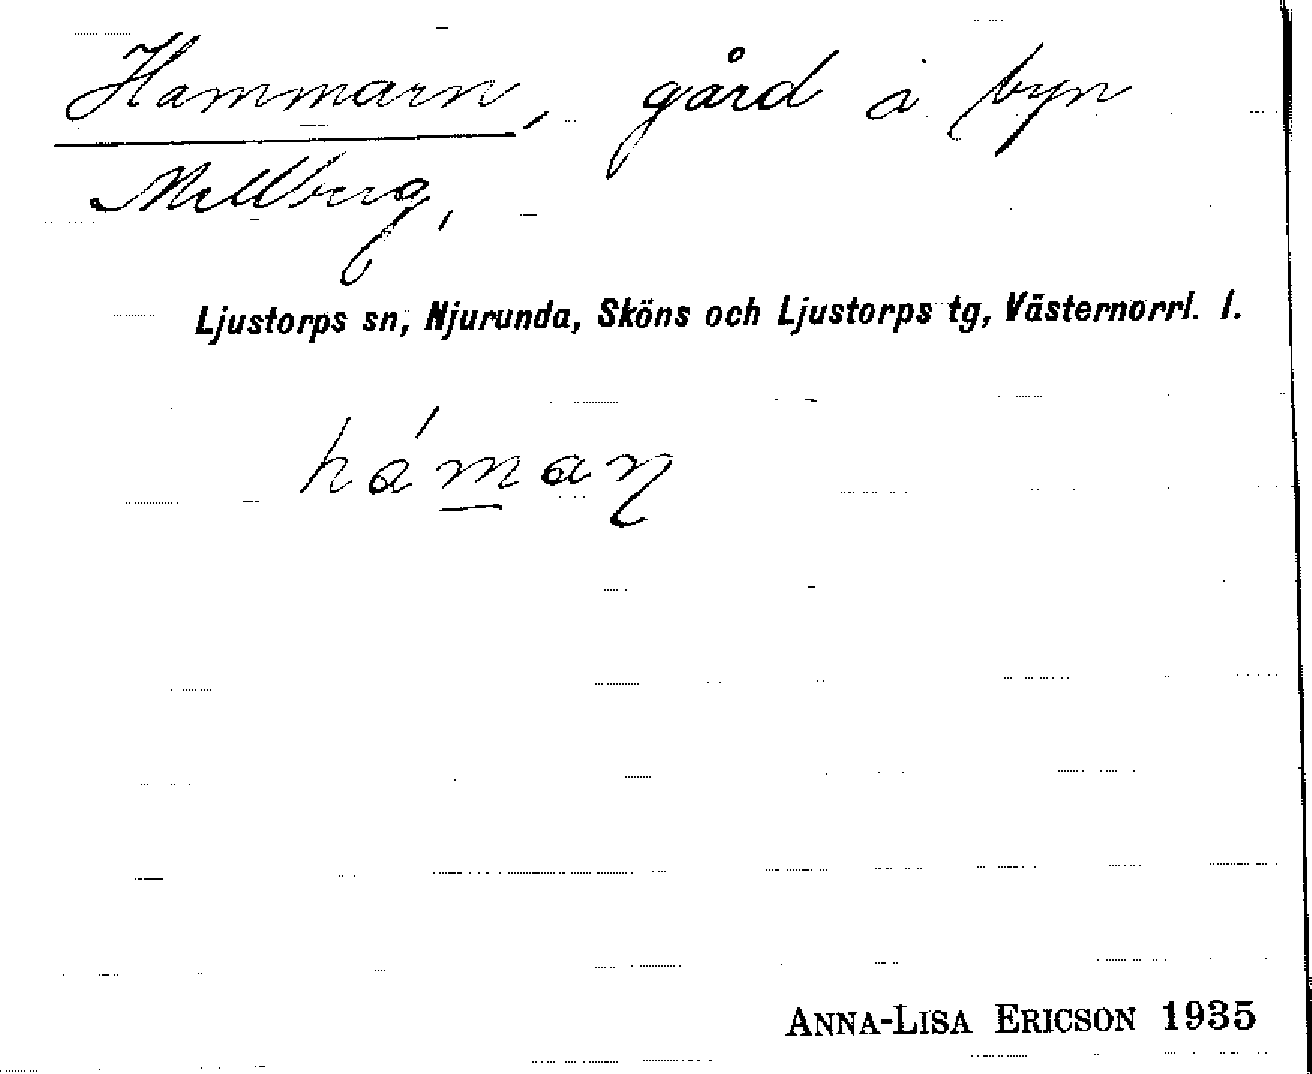 Hammarn, gård å byn
Mellberg,
Ljustorps sn, Njurunda, Sköns och Ljustorps tg, Västernorrl. l.
há̀m̲aɳ
ANNA-LISA ERICSON 1935